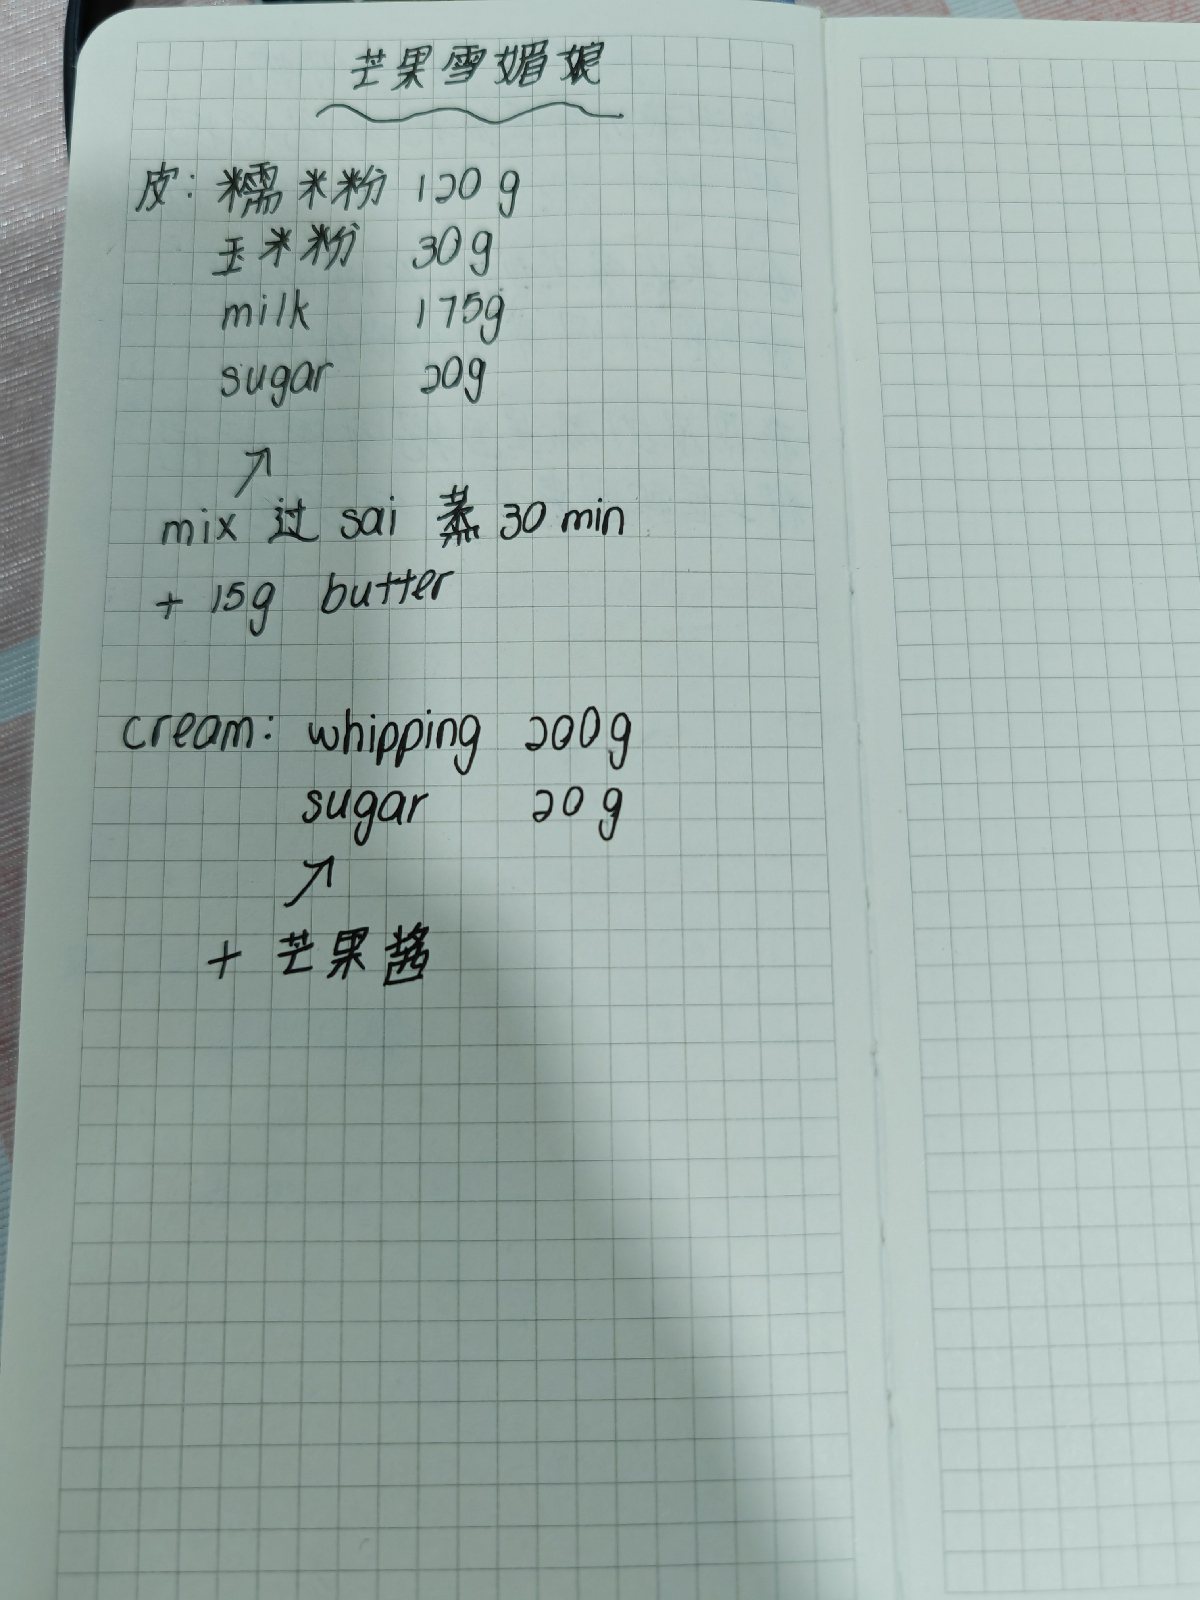 芒果雪媚娘
皮: 糯米粉 120g
玉米粉 30g
milk 175g
sugar 20g
↗
mix 过 sai 蒸 30 min
+ 15g butter
cream: whipping 200g
sugar 20g
↗
+ 芒果酱